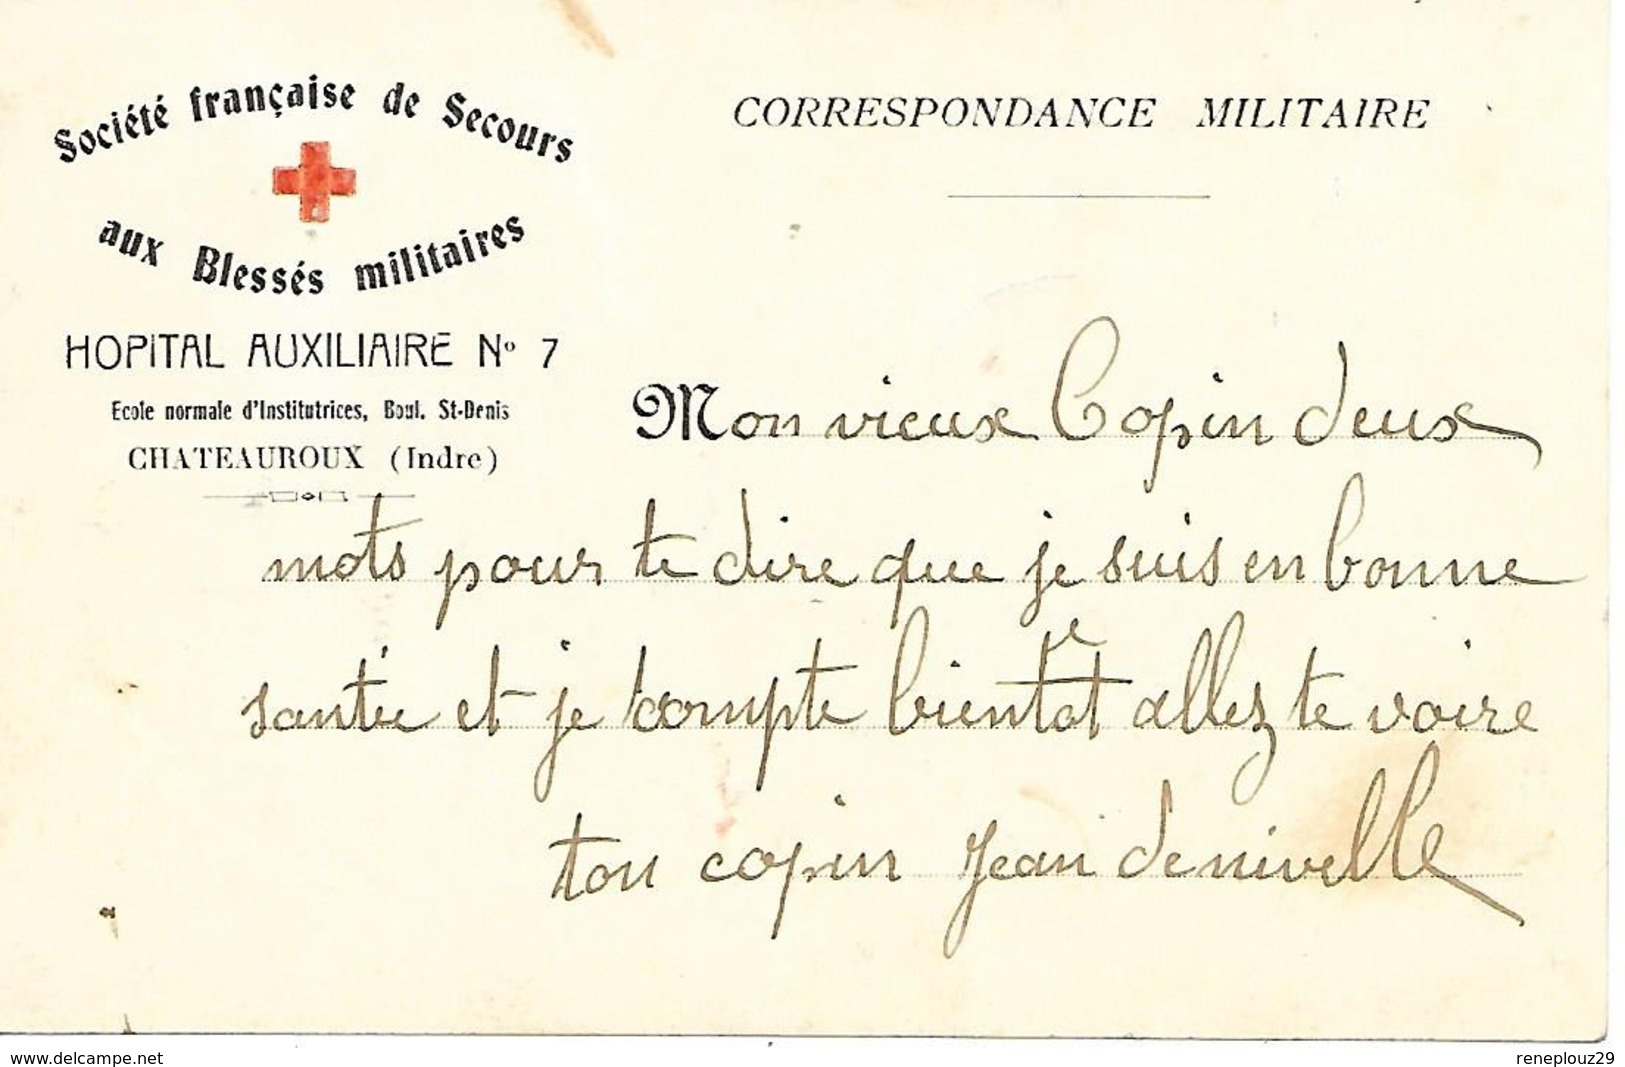 Société française de Secours
aux Blessés militaires
HOPITAL AUXILIAIRE Nº 7
Ecole normale d'Institutrices, Boul. St-Denis
CHATEAUROUX (Indre)
CORRESPONDANCE MILITAIRE
Mon vieux Copin deux
mots pour te dire que je suis en bonne
santée et je compte bientôt allez te voire
ton copin Jean denivelle
delcampe.net
reneplouz29